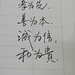 孝为先，
善为本，
诚为信，
和为贵。